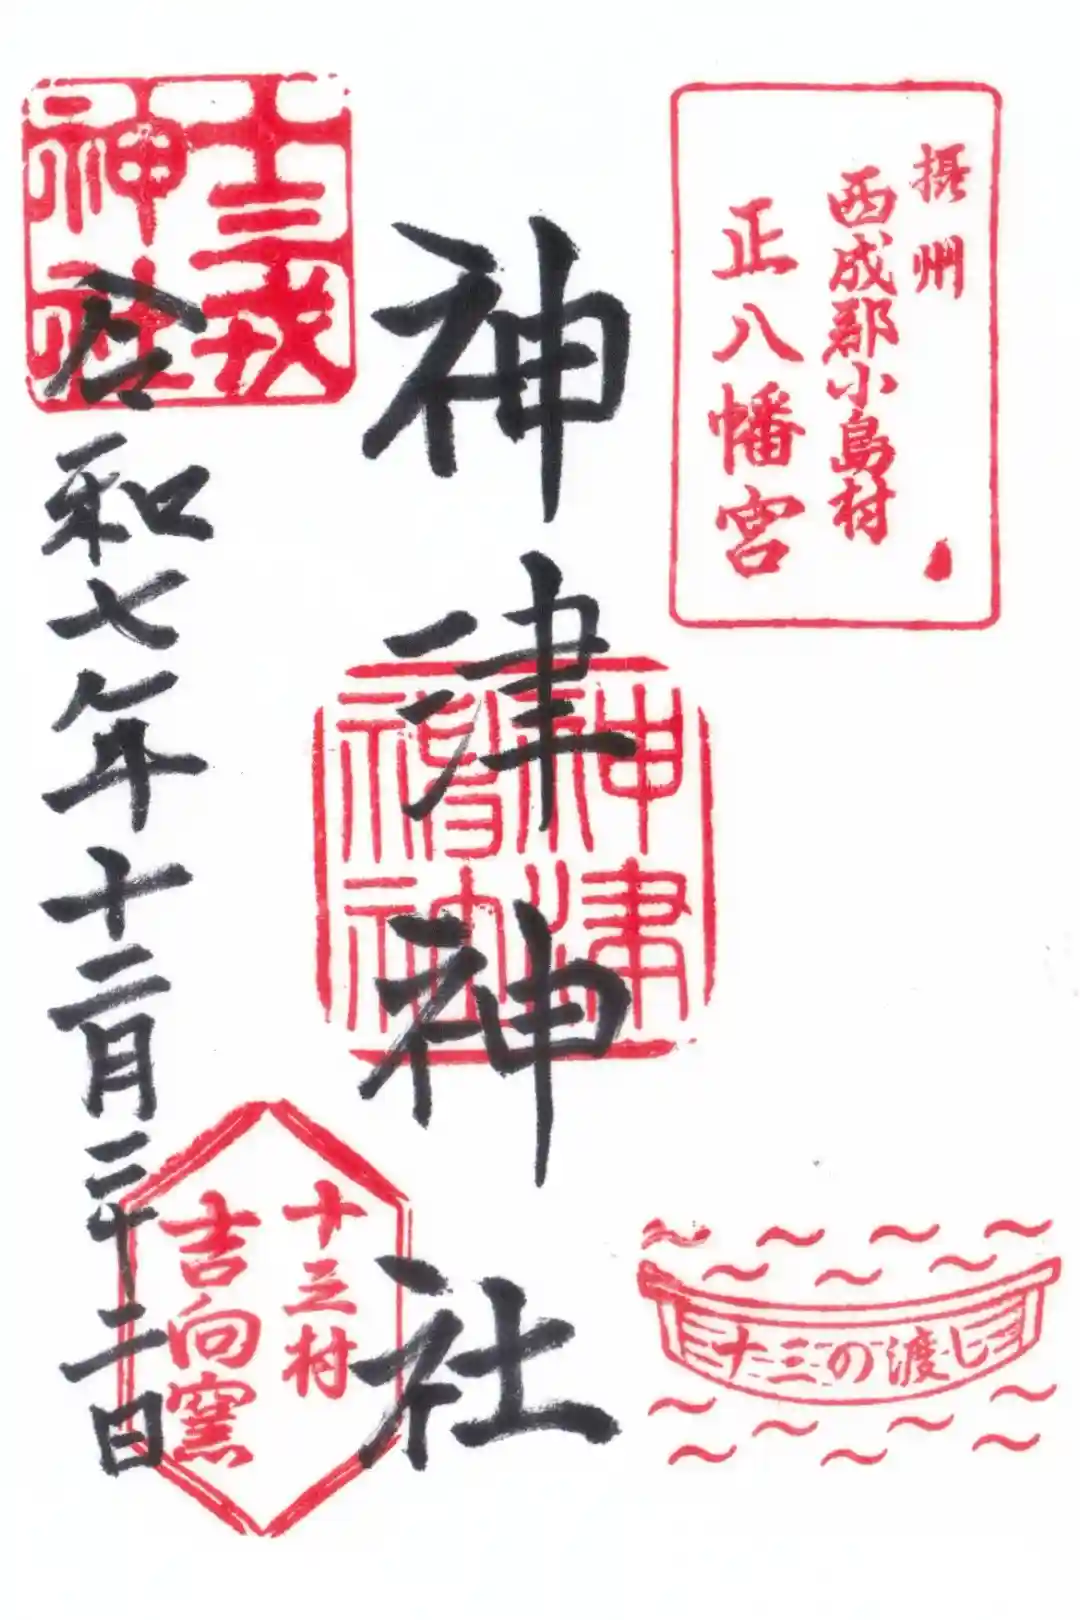 摂州
西成郡小島村
正八幡宮
十三の渡し
神津神社
十三戎
神社
令和七年十二月二十二日
十三村
吉向窯